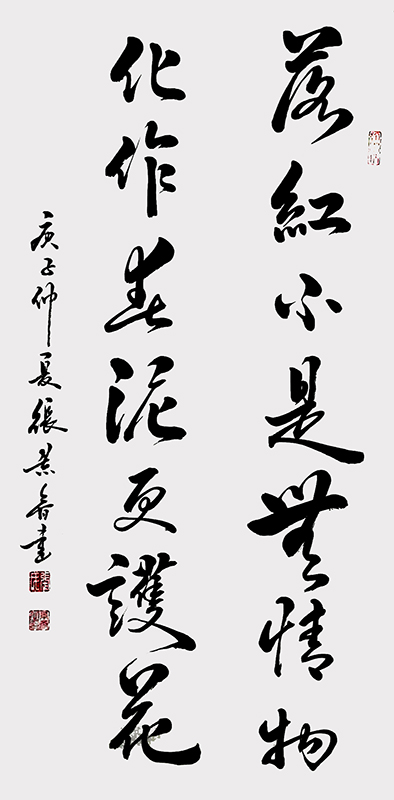 落紅不是無情物
化作春泥更護花
庚子仲夏張景春書